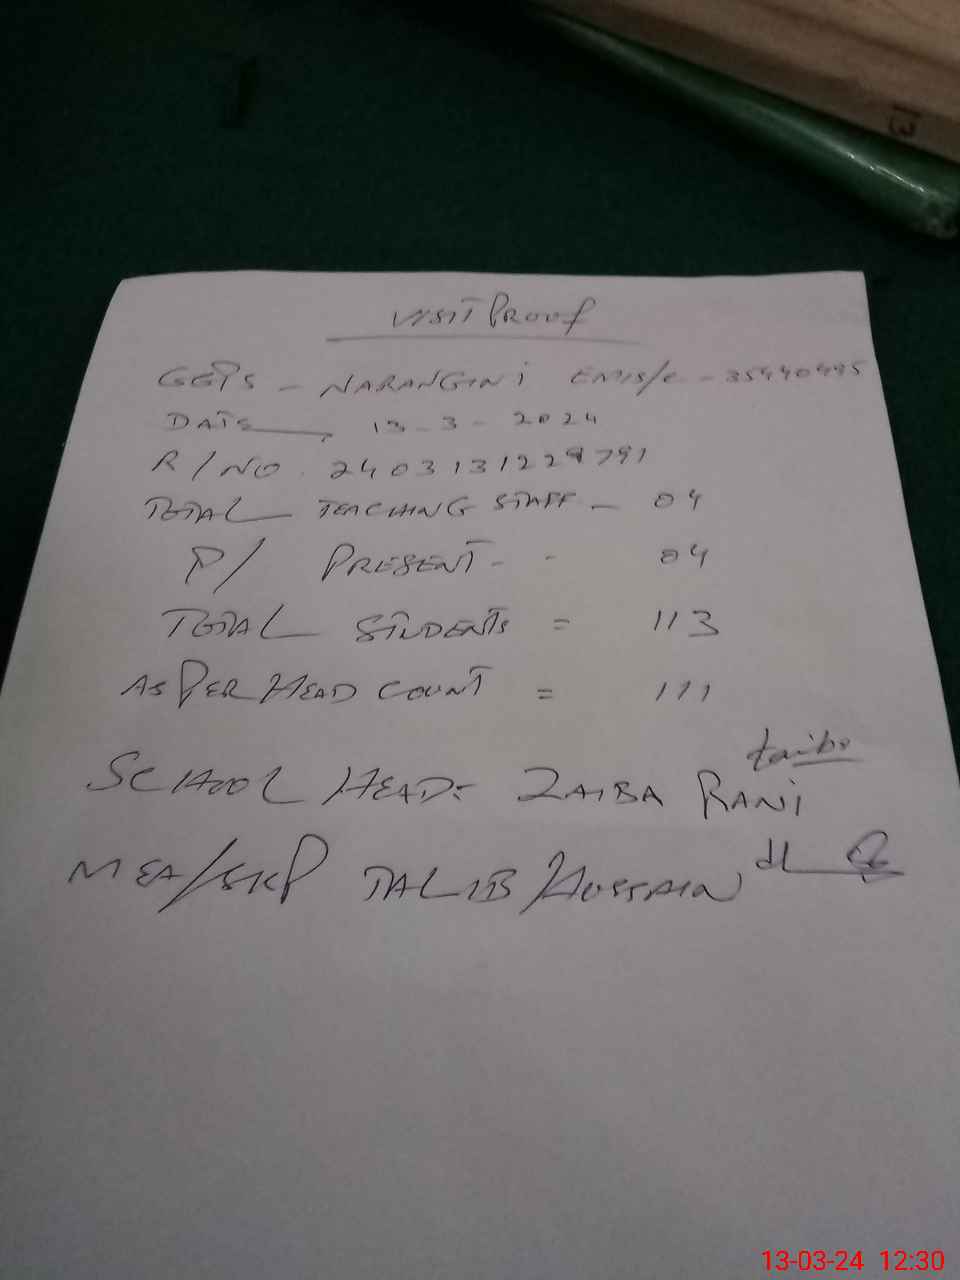 VISIT PROOF
GGPS - NARANGINI EMIS/C - 35440495
DATE 13-3-2024
R/NO. 2403131229791
TOTAL TEACHING STAFF - 04
P/ PRESENT - - 04
TOTAL STUDENTS = 113
AS PER HEAD COUNT = 111
zaiba
SCHOOL HEAD: ZAIBA RANI
MEA/SKP TALIB/HUSSAIN
13-03-24 12:30